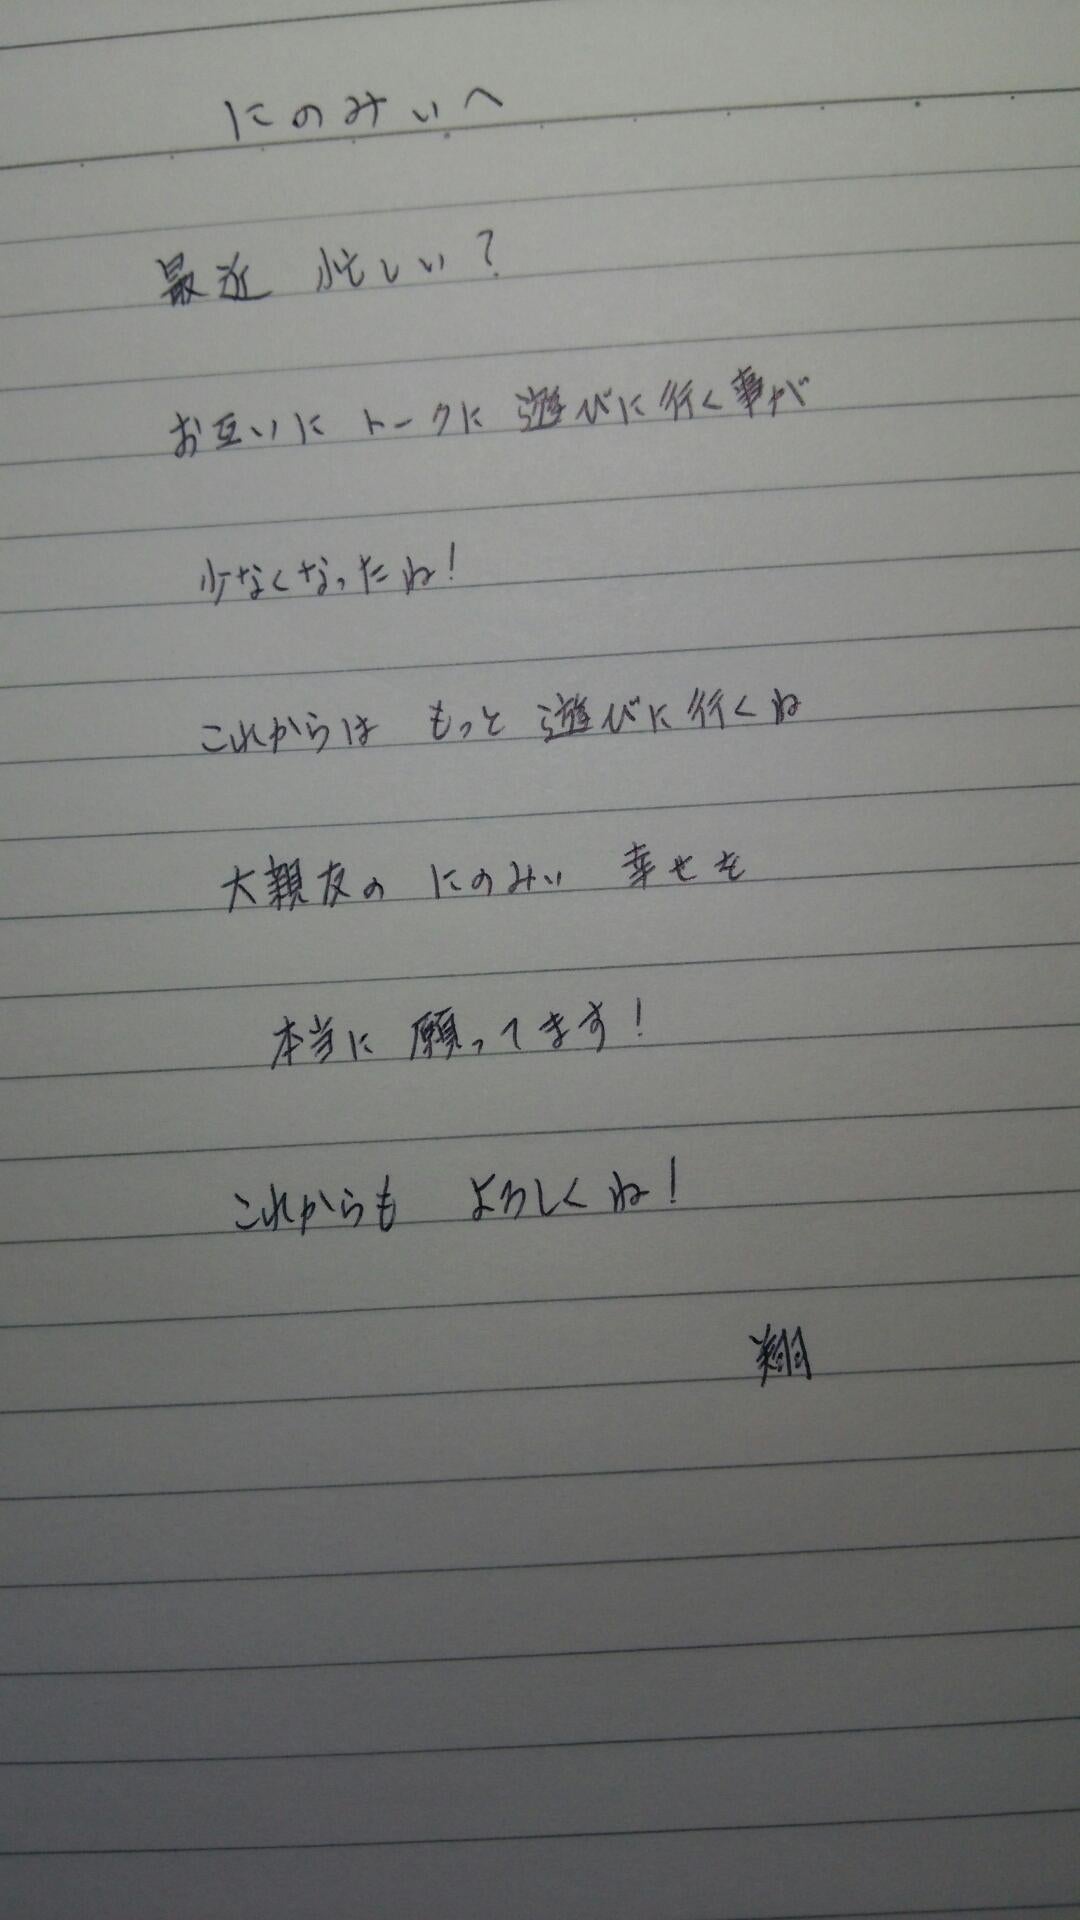 にのみぃへ
最近 忙しい？
お互いに トークに 遊びに行く事が
少なくなったね！
これからは もっと 遊びに行くね
大親友の にのみぃ 幸せを
本当に 願ってます！
これからも よろしくね！
翔